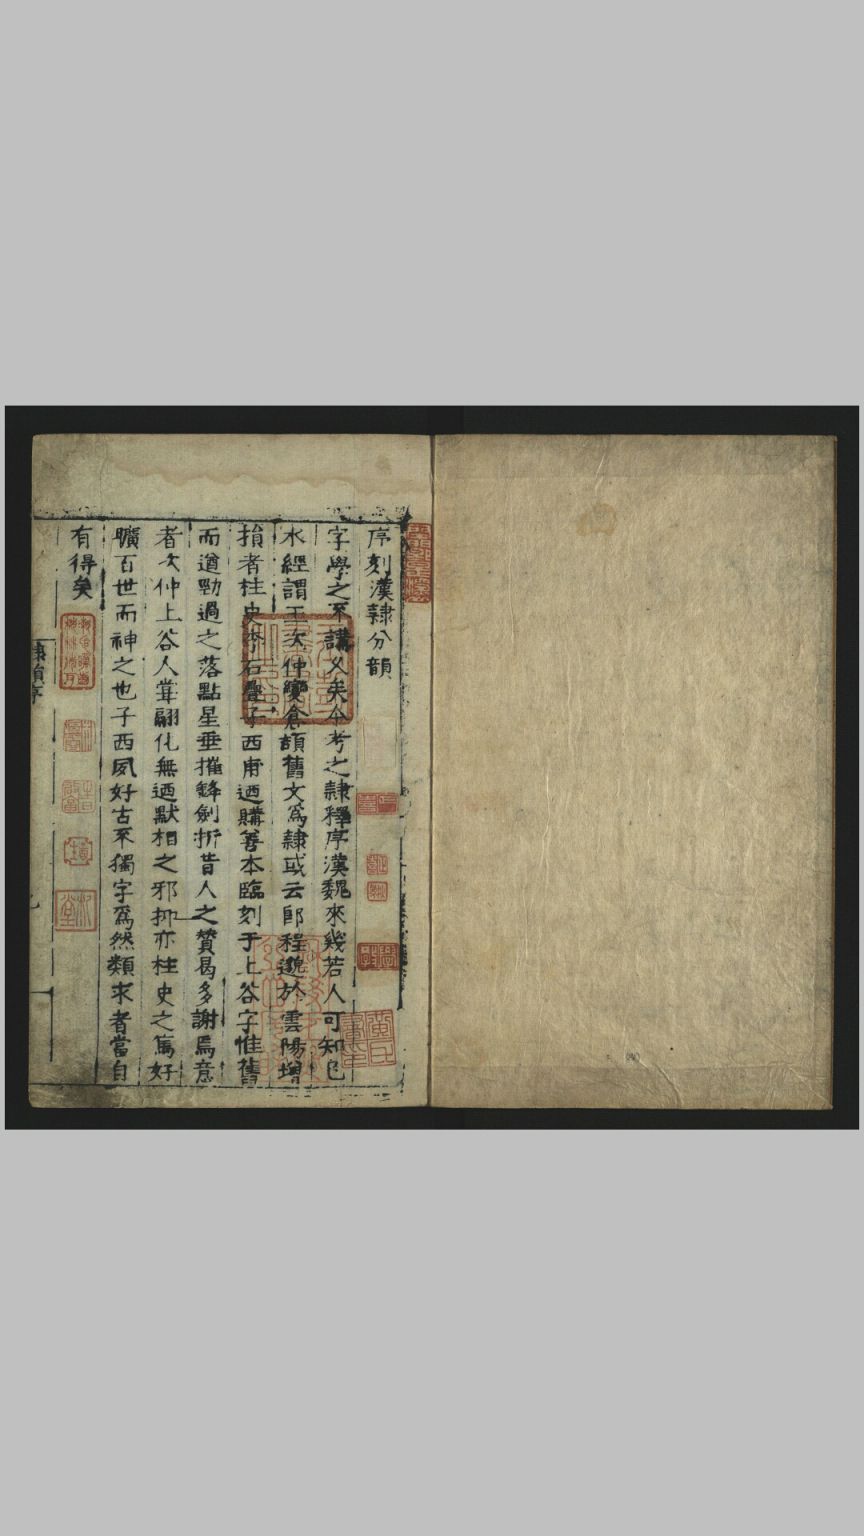 序刻漢隸分韻
字學之不講久矣今考之隸釋序漢魏來幾若人可知已
水經謂王次仲變倉頡舊文為隸或云郎程邈於雲陽增
損者柱史李石疊子西甫迺購善本臨刻于上谷字惟舊
而遒勁過之落點星垂摧鋒劍折昔人之贊曷多謝焉意
者次仲上谷人嘗翮化無迺默相之邪抑亦柱史之篤好
曠百世而神之也子西夙好古不獨字為然類求者當自
有得矣